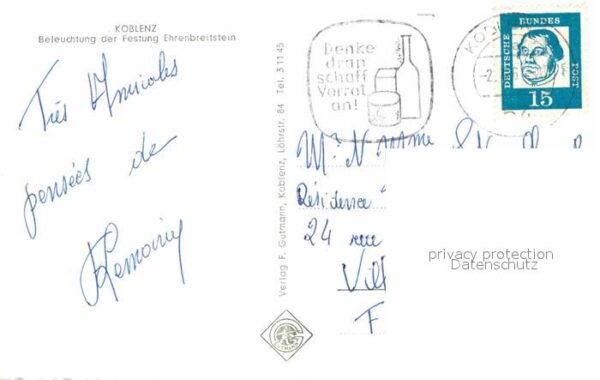 KOBLENZ
Beleuchtung der Festung Ehrenbreitstein
Très Amicales
pensées de
Verlag F. Gutmann, Koblenz, Löhrstr. 84 Tel. 3 11 45
GUTMANN
Denke
dran
schaff
Vorrat
an!
KOBL
-2.
DEUTSCHE BUNDES POST
Luther
15
Résidence
24 rue
Vill
F
privacy protection
Datenschutz